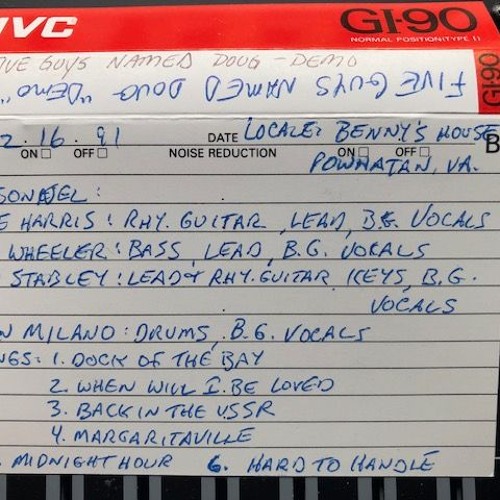 JVC GI-90
NORMAL POSITION (TYPE I)
FIVE GUYS NAMED DOUG - DEMO
FIVE GUYS NAMED DOUG "DEMO"
GI-90
2.16.91 DATE LOCALE: BENNY'S HOUSE B
ON □ OFF □ NOISE REDUCTION ON □ OFF □
POWHATAN, VA.
SONNEL:
E HARRIS: RHY. GUITAR, LEAD, B.G. VOCALS
WHEELER: BASS, LEAD, B.G. VOCALS
STABLEY: LEAD & RHY. GUITAR, KEYS, B.G.
VOCALS
N MILANO: DRUMS, B.G. VOCALS
NGS: 1. DOCK OF THE BAY
2. WHEN WILL I BE LOVED
3. BACK IN THE USSR
4. MARGARITAVILLE
. MIDNIGHT HOUR 6. HARD TO HANDLE